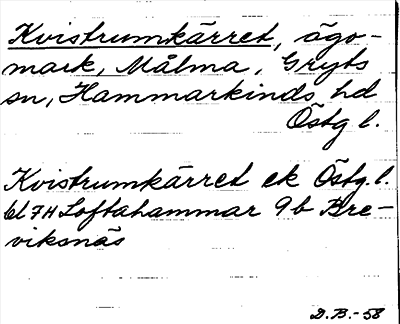 Kvistrumkärret, ägo-
mark, Målma, Gryts
sn, Hammarkinds hd
Östg l.
Kvistrumkärret ek Östg. l.
bl 7H Loftahammar 9b Bre-
viksnäs
D.B.-58